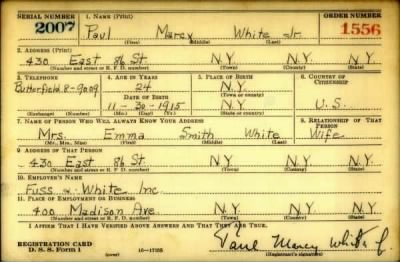 SERIAL NUMBER 1. NAME (Print) ORDER NUMBER
2007 Paul Marcy White Jr. 1556
(First) (Middle) (Last)
2. ADDRESS (Print)
430 East 86 St. N.Y. N.Y. N.Y.
(Number and street or R. F. D. number) (Town) (County) (State)
3. TELEPHONE 4. AGE IN YEARS 5. PLACE OF BIRTH 6. COUNTRY OF CITIZENSHIP
Butterfield 8-9009 24 N.Y.
DATE OF BIRTH (Town or county)
11-30-1915 N.Y. U.S.
(Exchange) (Number) (Mo.) (Day) (Yr.) (State or country)
7. NAME OF PERSON WHO WILL ALWAYS KNOW YOUR ADDRESS 8. RELATIONSHIP OF THAT PERSON
Mrs. Emma Smith White Wife
(Mr., Mrs., Miss) (First) (Middle) (Last)
9. ADDRESS OF THAT PERSON
430 East 86 St. N.Y. N.Y. N.Y.
(Number and street or R. F. D. number) (Town) (County) (State)
10. EMPLOYER'S NAME
Fuss & White Inc.
11. PLACE OF EMPLOYMENT OR BUSINESS
400 Madison Ave. N.Y. N.Y. N.Y.
(Number and street or R. F. D. number) (Town) (County) (State)
I AFFIRM THAT I HAVE VERIFIED ABOVE ANSWERS AND THAT THEY ARE TRUE.
REGISTRATION CARD Paul Marcy White Jr
D. S. S. Form 1 (over) 16-17105 (Registrant's signature)